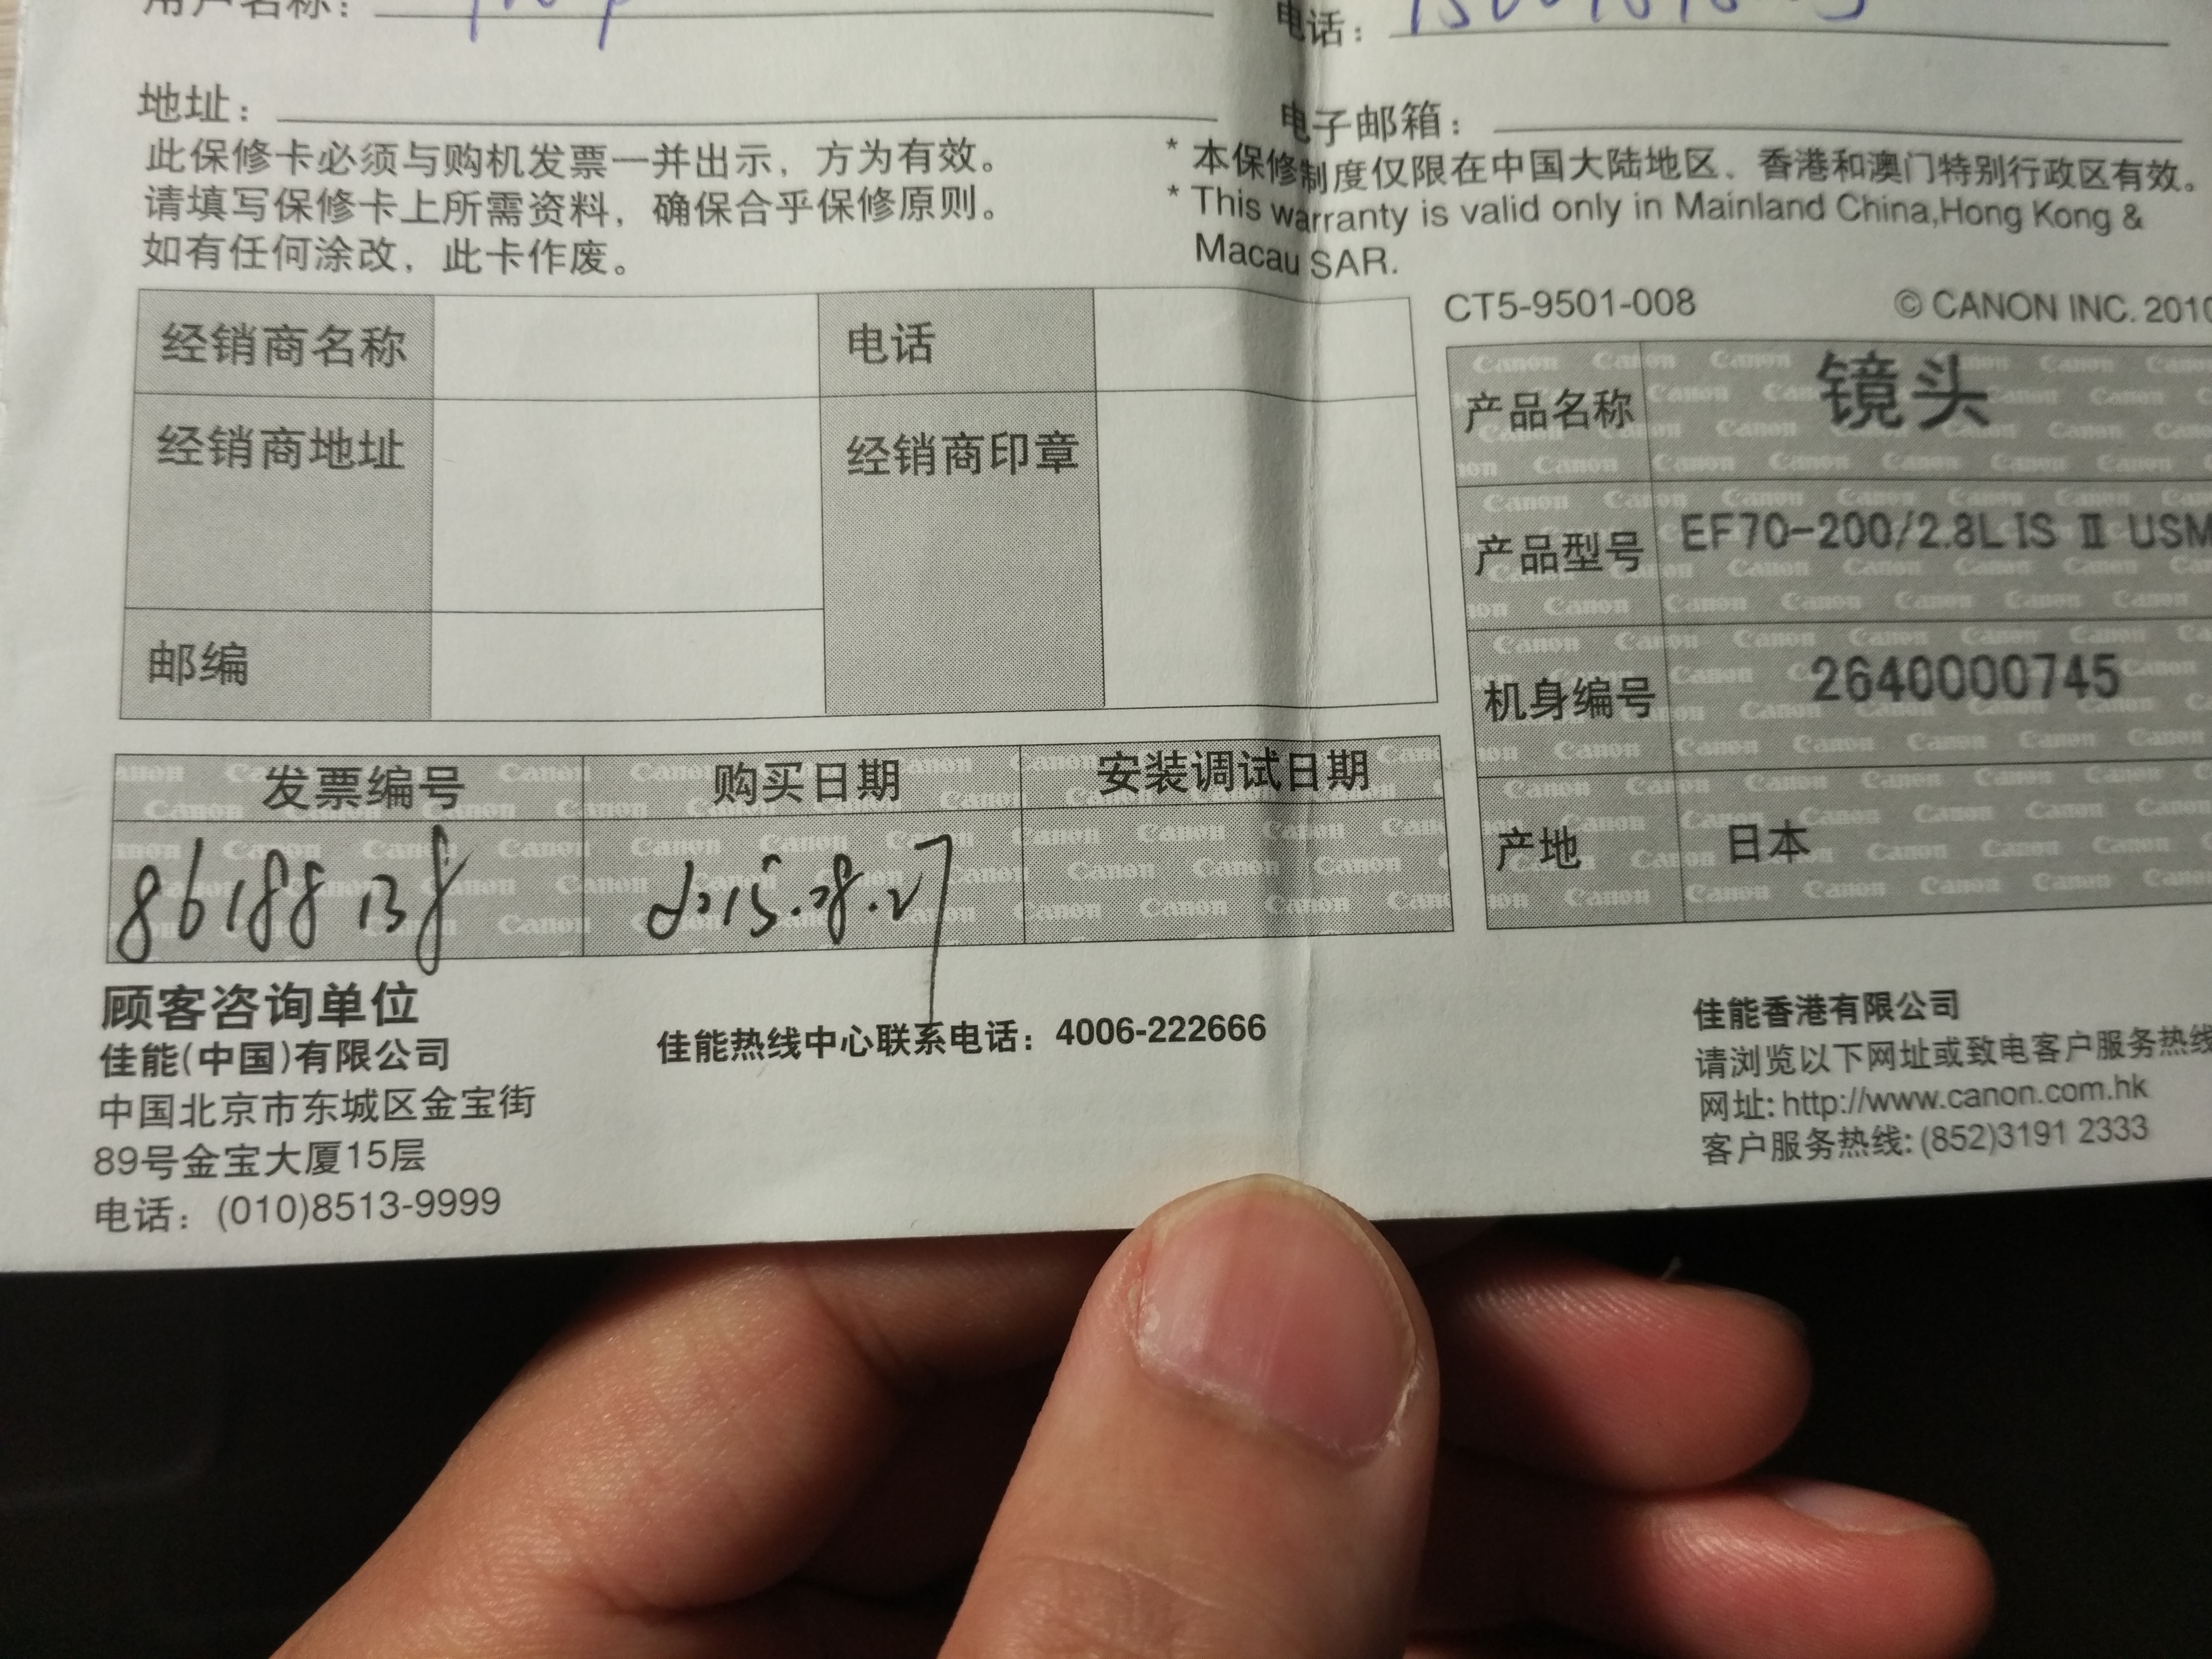 用户名称：
电话：
地址：
电子邮箱：
此保修卡必须与购机发票一并出示，方为有效。
请填写保修卡上所需资料，确保合乎保修原则。
如有任何涂改，此卡作废。
* 本保修制度仅限在中国大陆地区、香港和澳门特别行政区有效。
* This warranty is valid only in Mainland China,Hong Kong &
Macau SAR.
经销商名称
电话
经销商地址
经销商印章
邮编
CT5-9501-008 © CANON INC. 2010
产品名称 镜头
产品型号 EF70-200/2.8L IS Ⅱ USM
机身编号 2640000745
产地 日本
发票编号 购买日期 安装调试日期
86188138 2015.08.27
顾客咨询单位
佳能(中国)有限公司
中国北京市东城区金宝街
89号金宝大厦15层
电话：(010)8513-9999
佳能热线中心联系电话：4006-222666
佳能香港有限公司
请浏览以下网址或致电客户服务热线
网址: http://www.canon.com.hk
客户服务热线: (852)3191 2333